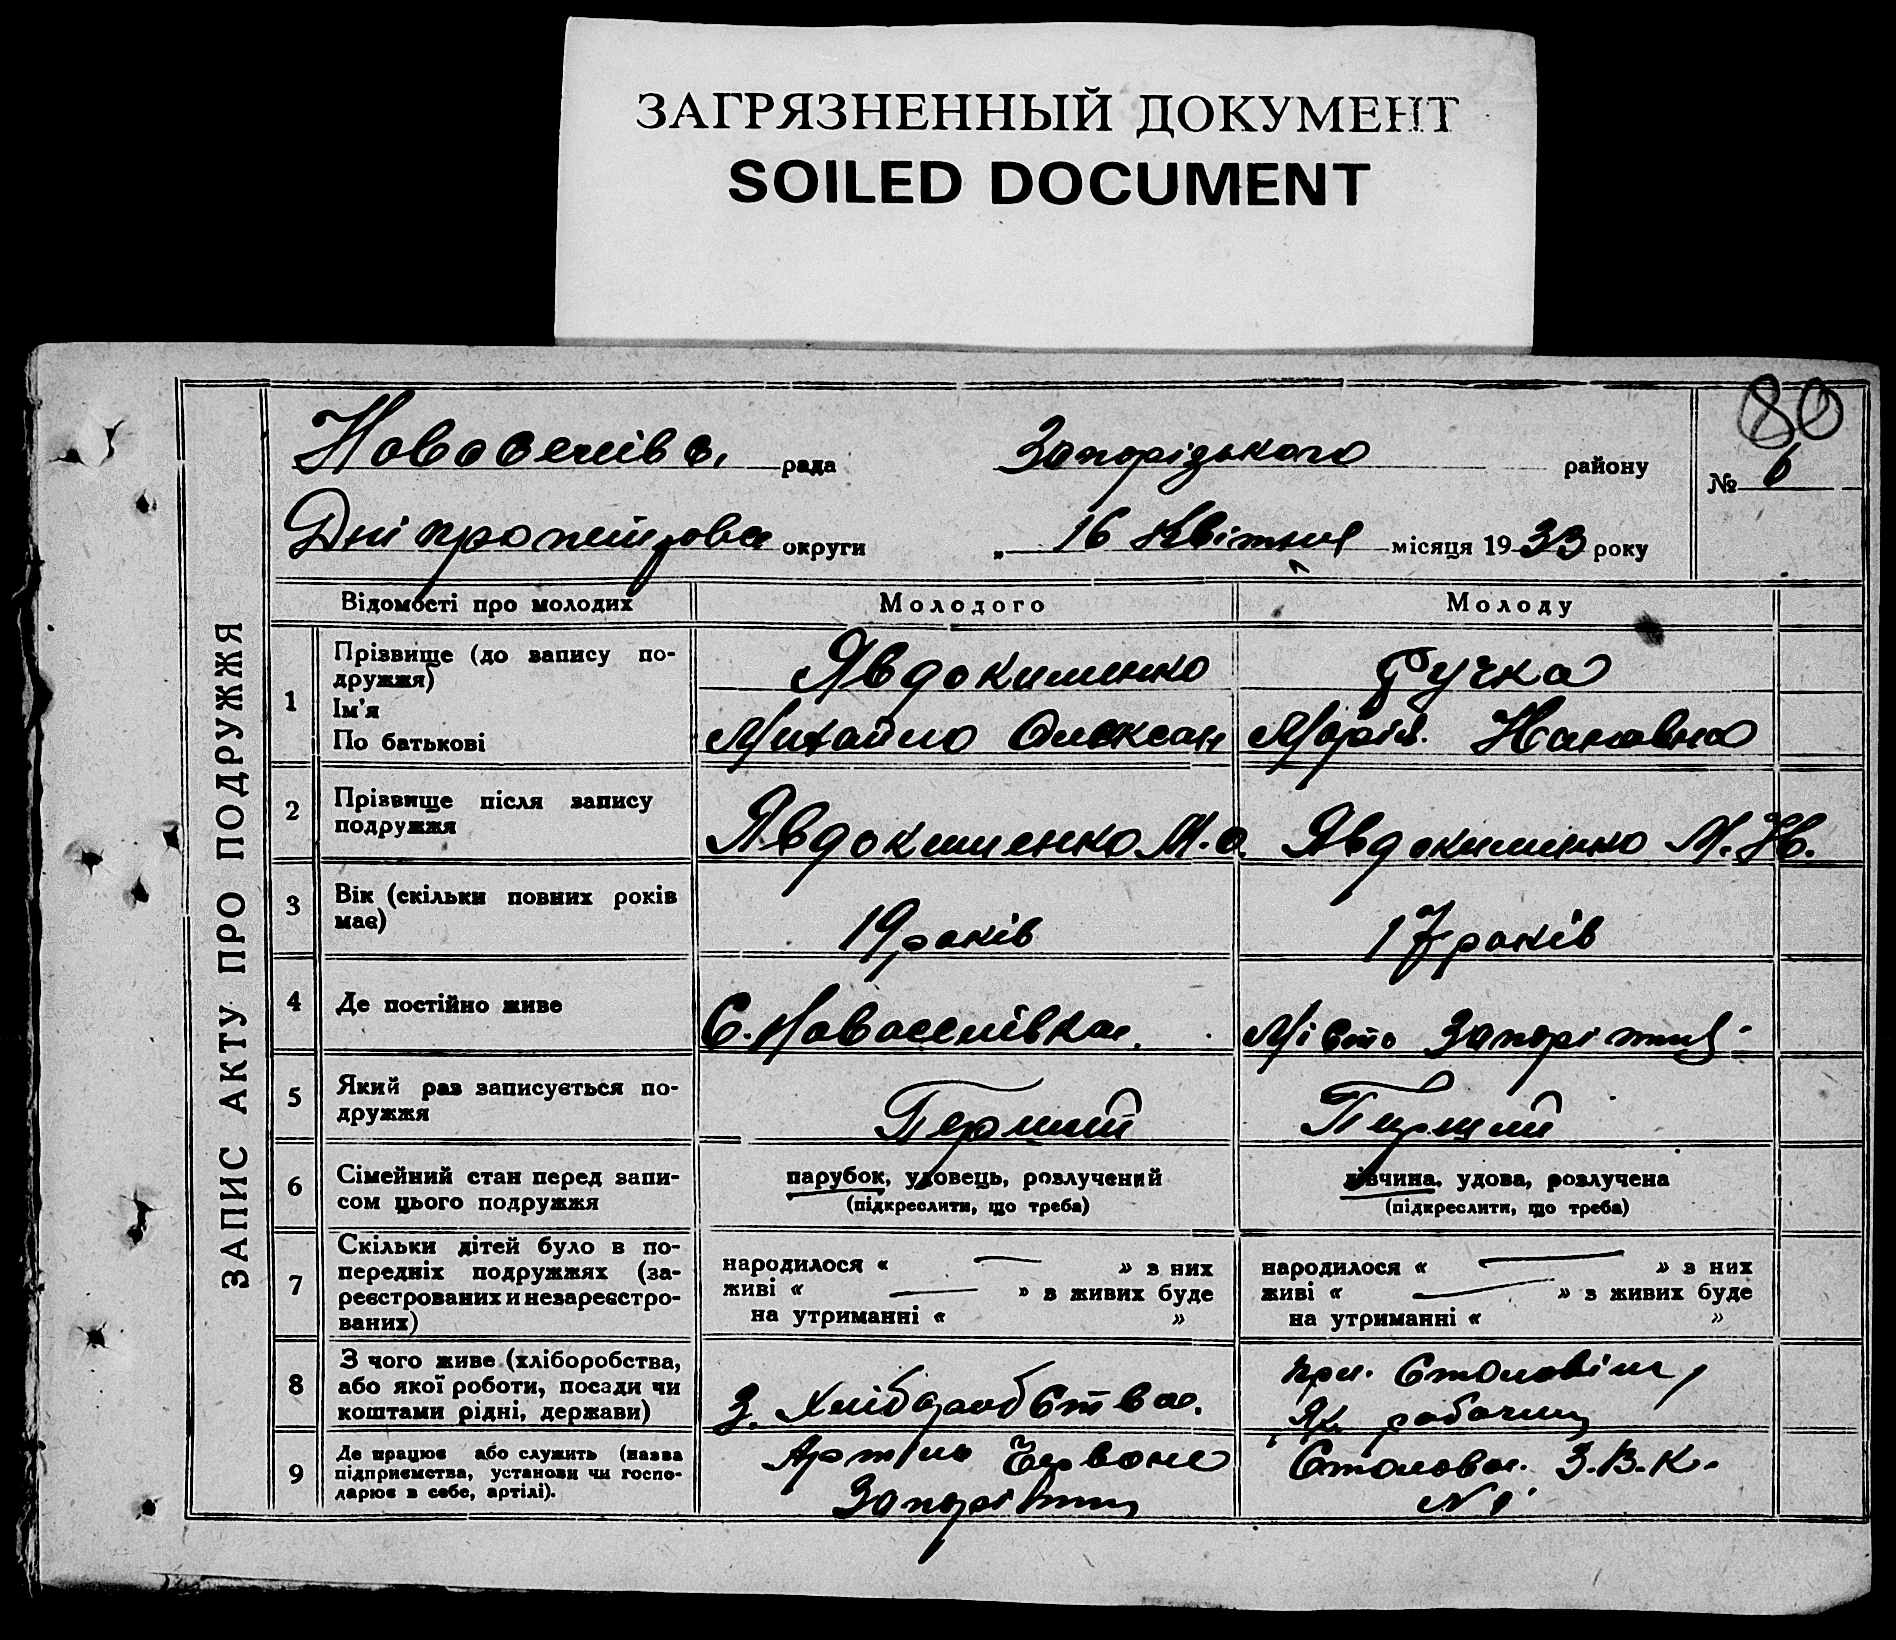 ЗАГРЯЗНЕННЫЙ ДОКУМЕНТ
SOILED DOCUMENT
80
Новоселівс. рада Запорізького району № 6
Дніпропетровсь округи „ 16 Квітня місяця 1933 року
ЗАПИС АКТУ ПРО ПОДРУЖЖЯ
Відомості про молодих Молодого Молоду
1 Прізвище (до запису по-
дружжя) Явдокименко Гучка
Ім'я
По батькові Михайло Олексан Марія
2 Прізвище після запису
подружжя Явдокименко М. О. Явдокименко М.
3 Вік (скільки повних років
має) 19 років 17 років
4 Де постійно живе С. Новоселівка. Місто Запоріжжя
5 Який раз записується по-
дружжя Перший Перший
6 Сімейний стан перед запи-
сом цього подружжя
парубок, удовець, розлучений
(підкреслити, що треба)
дівчина, удова, розлучена
(підкреслити, що треба)
7 Скільки дітей було в по-
передніх подружжях (за-
реєстрованих и незареєстро-
ваних)
народилося « — » з них
живі « — » з живих буде
на утриманні « »
народилося « — » з них
живі « — » з живих буде
на утриманні « »
8 З чого живе (хліборобства,
або якої роботи, посади чи
коштами рідні, держави)
З. Хліборобства.
при. Столовіш
як рабочиц
9 Де працює або служить (назва
підприємства, установи чи госпо-
дарює в себе, артілі).
Артіль Червоне
Запоріжжя
Столова. З.В.К.
N 1